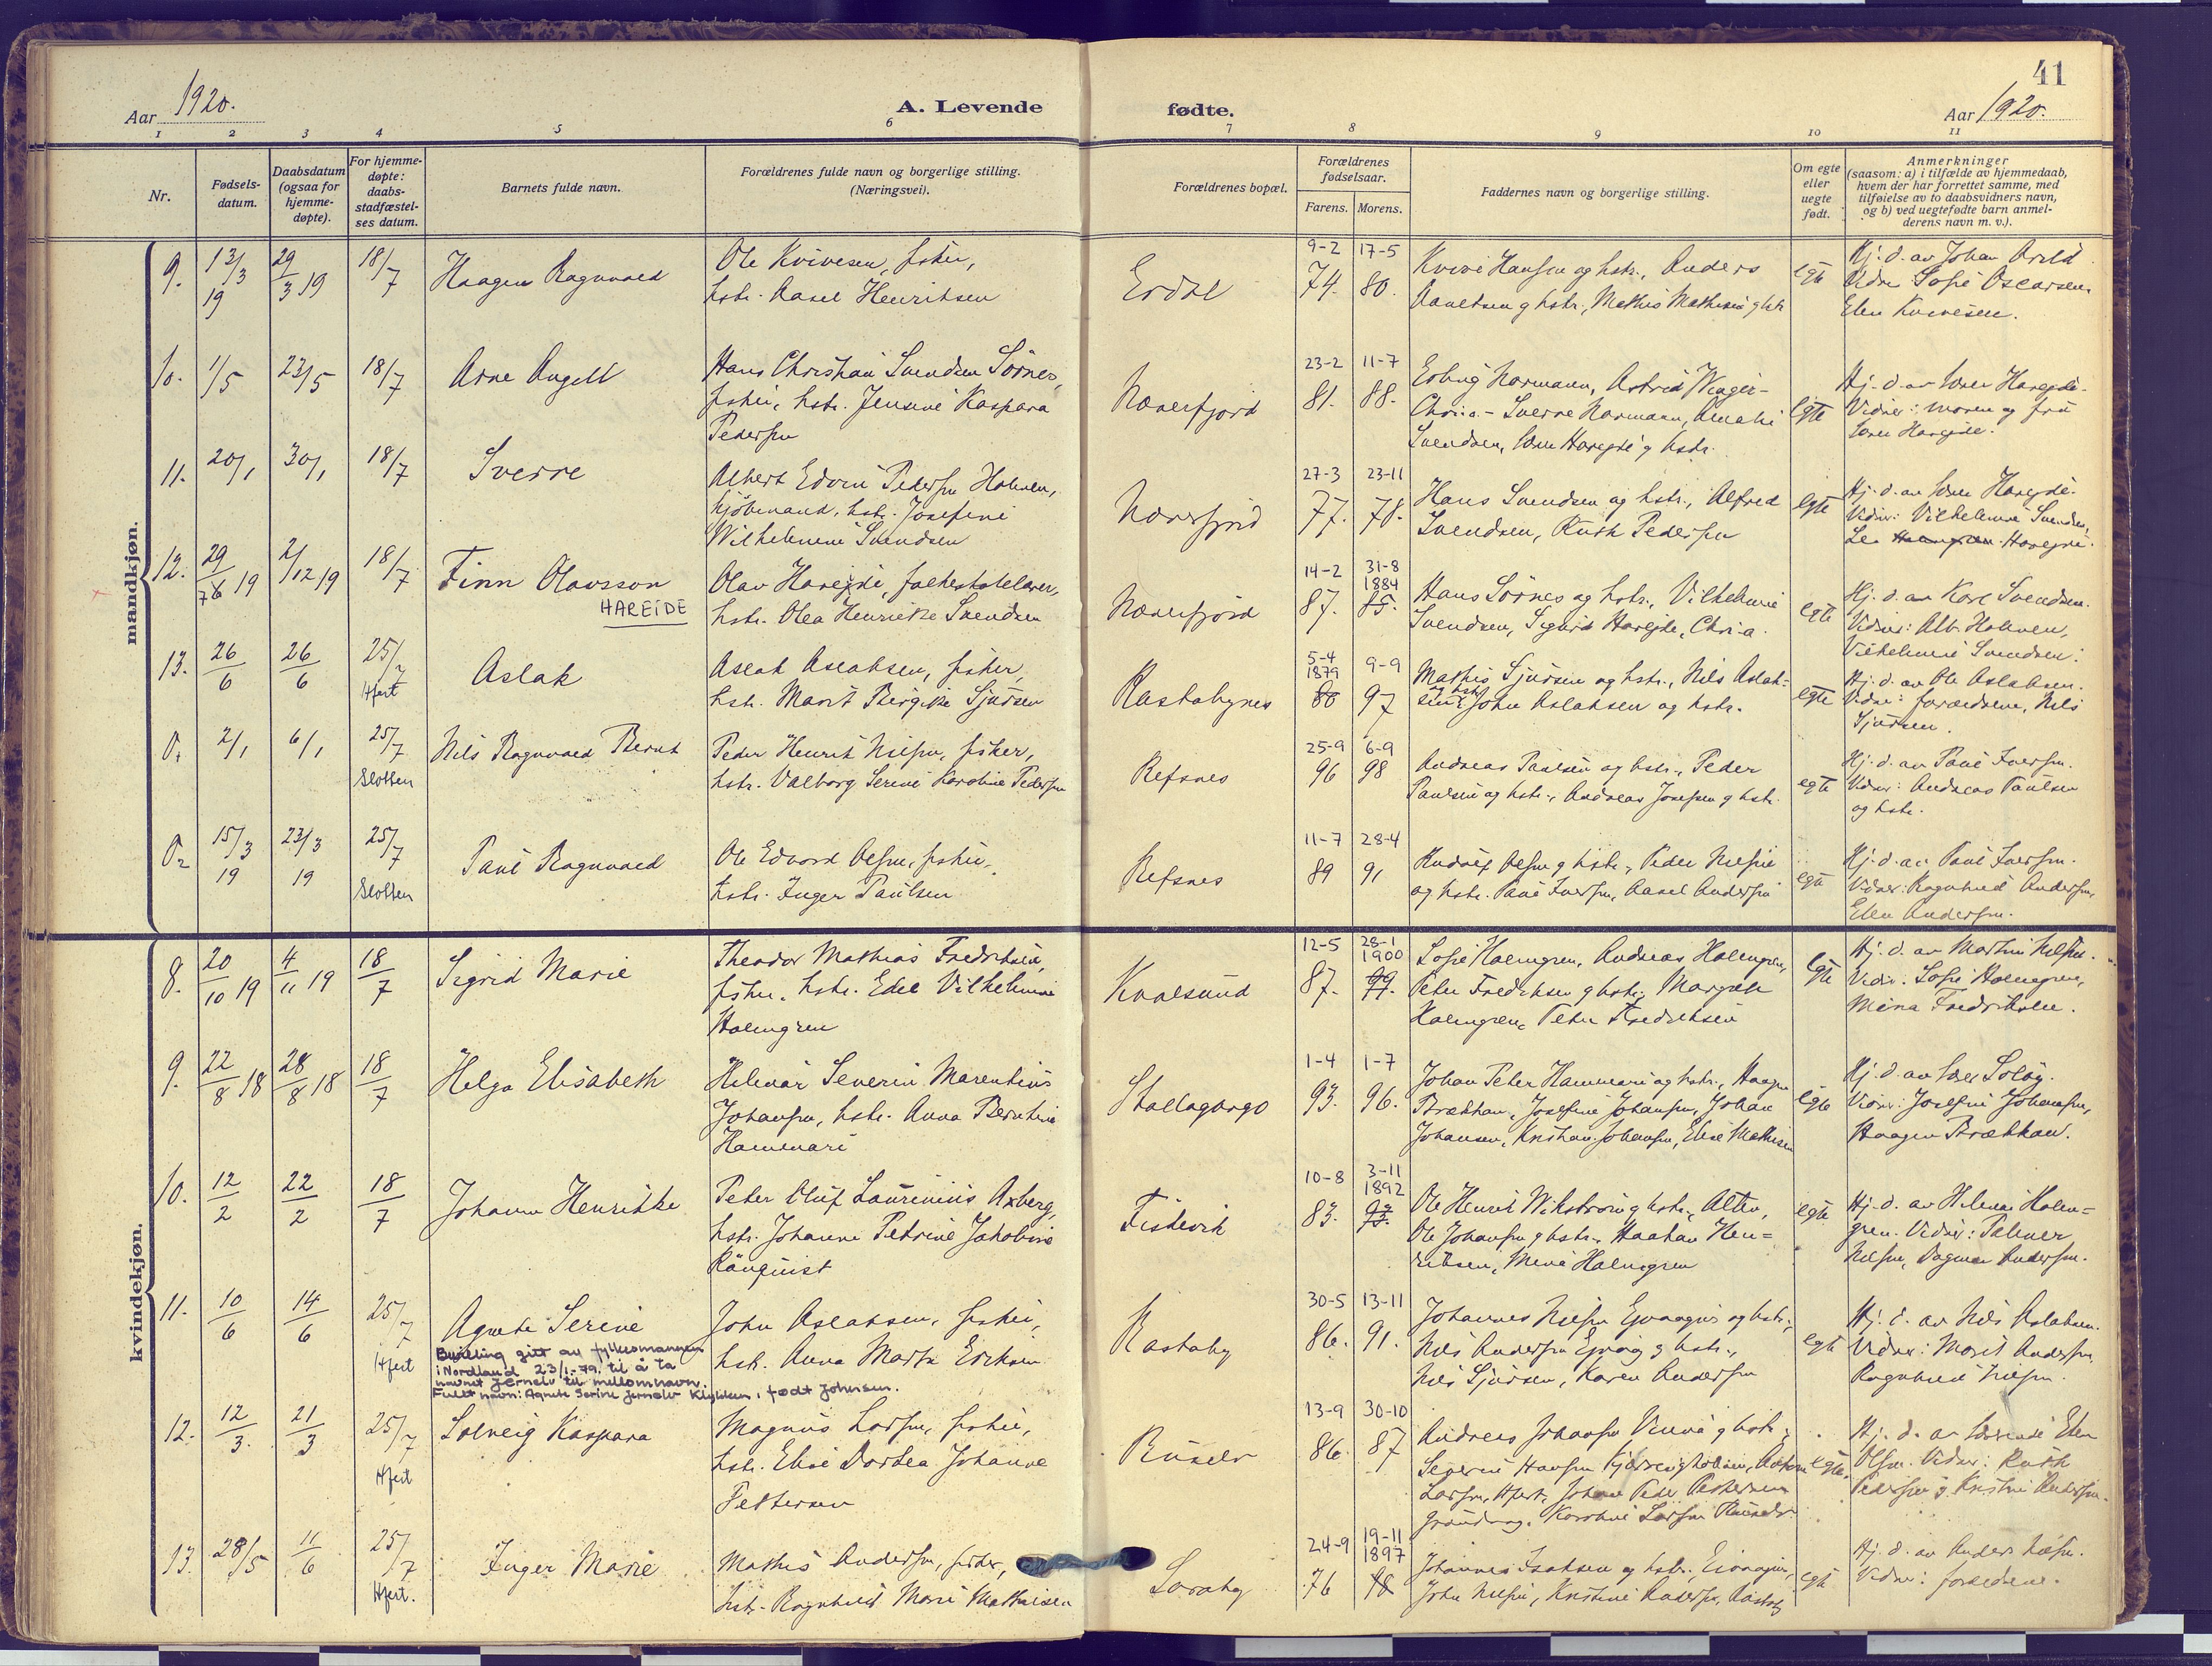 41
Aar 1920.
A. Levende fødte.
Aar 1920.
1 2 3 4 5 6 7 8 9 10 11
Nr.
Fødsels-
datum.
Daabsdatum
(ogsaa for
hjemme-
døpte).
For hjemme-
døpte:
daabs-
stadfæstel-
ses datum.
Barnets fulde navn.
Forældrenes fulde navn og borgerlige stilling.
(Næringsvei).
Forældrenes bopæl.
Forældrenes
fødselsaar.
Farens. Morens.
Faddernes navn og borgerlige stilling.
Om egte
eller
uegte
født.
Anmerkninger
(saasom: a) i tilfælde av hjemmedaab,
hvem der har forrettet samme, med
tilføielse av to daabsvidners navn,
og b) ved uegtefødte barn anmel-
derens navn m. v.).
mandkjøn.
9. 13/3 19 29/3 19 18/7 Haagen Ragnvald
Ole Kvivesen, fisker,
hstr. Aasel Henriksen
Erdal
9-2 17-5
74. 80.
Kvive Hansen og hstr., Anders
hstr., Mathis Mathisen g hstr
egte
Hj. d. av Johan Arild
Vidne Sofie Oscarsen,
Elen Kvivesen.
10. 1/5 23/5 18/7 Arne Angell
Hans Christian Svendsen Sörnes,
fisker, hstr. Jensine Kaspara
Pedersen
Næverfjord
23-2 11-7
81. 88.
Erling Normann, Astrid
Chri.a. - Sverre Normann,
Svendsen, lærer Hareide g hstr.
egte
Hj. d. av lærer Hareide.
Vidner: moren og fru
lærer Hareide.
11. 20/1 30/1 18/7 Sverre
Albert Edvin Pedersen Holmen,
kjöbmand, hstr. Josefine
Wilhelmine Svendsen
Næverfjord
27-3 23-11
77. 78.
Hans Svendsen og hstr., Alfred
Svendsen, Ruth Pedersen
egte
Hj. d. av lærer Hareide.
Vidner: Vilhelmine Svendsen,
Hareide.
12. 29/ 19 2/12 19 18/7 Finn Olavsson
HAREIDE
Olav Hareide, folkeskolelærer,
hstr. Olea Henrikke Svendsen
Næverfjord
14-2 31-8
1884
87. 85.
Hans Sörnes og hstr., Vilhelmine
Svendsen, Sigurd Hareide, Chri.a.
egte
Hj. d. av Kare Svendsen.
Vidner: Alb. Holmen,
Vilhelmine Svendsen.
13. 26/6 26/6 25/7 Hfert Aslak
Aslak Aslaksen, fisker,
hstr. Marit Birgitte Sjursen
Rastabynes
5-4 9-9
1879
80 97
Mathis Sjursen og hstr., Nils Aslak-
sen og hstr John Aslaksen og hstr.
egte
Hj. d. av Ole Aslaksen.
Vidner: forældrene, Nils
Sjursen.
O1 2/1 6/1 25/7 Slotten Nils Ragnvald Bernt
Peder Henrik Nilsen, fisker,
hstr. Valborg Serine Karoline Pedersen
Refsnes
25-9 6-9
96 98
Andreas Paulsen og hstr., Peder
Paulsen og hstr., Andreas Josefsen g hstr.
egte
Hj. d. av Paul Iversen.
Vidner: Andreas Paulsen
og hstr.
O2 15/3 19 23/3 19 25/7 Slotten Paul Ragnvald
Ole Edvard Olsen, fisker,
hstr. Inger Paulsen
Refsnes
11-7 28-4
89 91
Olsen g hstr., Peder Nilsen
og hstr. Paul Iversen, Aasel Andersen
egte
Hj. d. av Paul Iversen.
Vidner: Ragnhild Andersen,
Elen Andersen.
kvindekjøn.
8. 20/10 19 4/11 19 18/7 Sigrid Marie
Theodor Mathias Fredriksen,
fisker, hstr. Edel Vilhelmine
Holmgren
Kvalsund
12-5 28-1
1900
87. 99.
Sofie Holmgren, Andreas Holmgren,
Peter Fredriksen g hstr., Margrete
Holmgren, Peter Fredriksen
egte
Hj. d. av Martin Nilsen.
Vidner: Sofie Holmgren,
Mina Fredriksen.
9. 22/8 18 28/8 18 18/7 Helga Elisabeth
Hilmar Severin Marentius
Johansen, hstr. Anna Berntine
Hammari
Stallogargo
1-4 1-7
93. 96.
Johan Peter Hammari og hstr., Haagen
Brækkan, Josefine Johansen, Johan
Johansen, Kristian Johansen, Elise Mathisen
egte
Hj. d. av lærer Solöy.
Vidner: Josefine Johansen,
Haagen Brækkan.
10. 12/2 22/2 18/7 Johanne Henrikke
Peter Oluf Laurinius Axberg,
hstr. Johanne Petrine Jakobine
Ranquist
Fiskevik
10-8 3-11
1892
83. 93.
Ole Henrik Wikström g hstr., Alten,
Ole Johansen g hstr., Haakan Hen-
riksen, Mina Holmgren
egte
Hj. d. av Hilmar Holm-
gren. Vidner: Palmer
Nilsen, Dagmar Andersen.
11. 10/6 14/6 25/7 Hfert Agnete Serine
Bevilling gitt av fylkesmannen
i Nordland 23/1-79, til å ta
navnet Jernelv til mellomnavn.
Fullt navn: Agnete Serine Jernelv , født Johnsen.
John Aslaksen, fisker,
hstr. Anna Marta Eriksen
Rastaby
30-5 13-11
86. 91.
Johannes Nilsen og hstr.,
Nils Andersen g hstr.,
Nils Sjursen, Karen Andersen
egte
Hj. d. av Nils Aslaksen.
Vidner: Marit Andersen,
Ragnhild Nilsen.
12. 12/3. 21/3 25/7 Hfert Solveig Kaspara
Magnus Larsen, fisker,
hstr. Elise Dortea Johanne
Pettersen
Ruselv
13-9 30-10
86. 87
Andreas Johansen g hstr.,
Severin Hansen
Larsen, Hfert, Johan Peder Pettersen
Karoline Larsen Ruselv
egte.
Hj. d. av Elen
Olsen. Vidner: Ruth
Pedersen g Kristine Andersen.
13. 28/5 11/6 25/7 Hfert. Inger Marie
Mathis Andersen, fisker,
hstr. Ragnhild Marie Mathisen
Laraby
24-9 19-11
1897
76 98
Johannes Isaksen og hstr.
John Nilsen, Kristine Andersen, Rastaby
egte
Hj. d. av Anders
Vidner: forældrene.